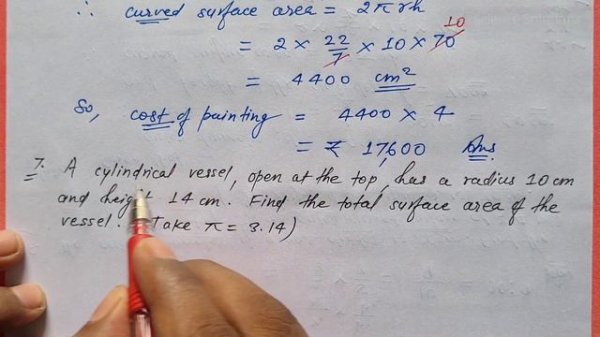 ∴ curved surface area = 2πrh
= 2 × 22/7 × 10 × 70 10
= 4400 cm²
So, cost of painting = 4400 × 4
= ₹ 17,600 Ans
7. A cylindrical vessel, open at the top, has a radius 10 cm
and 14 cm. Find the total surface area of the
vessel. Take π = 3.14)